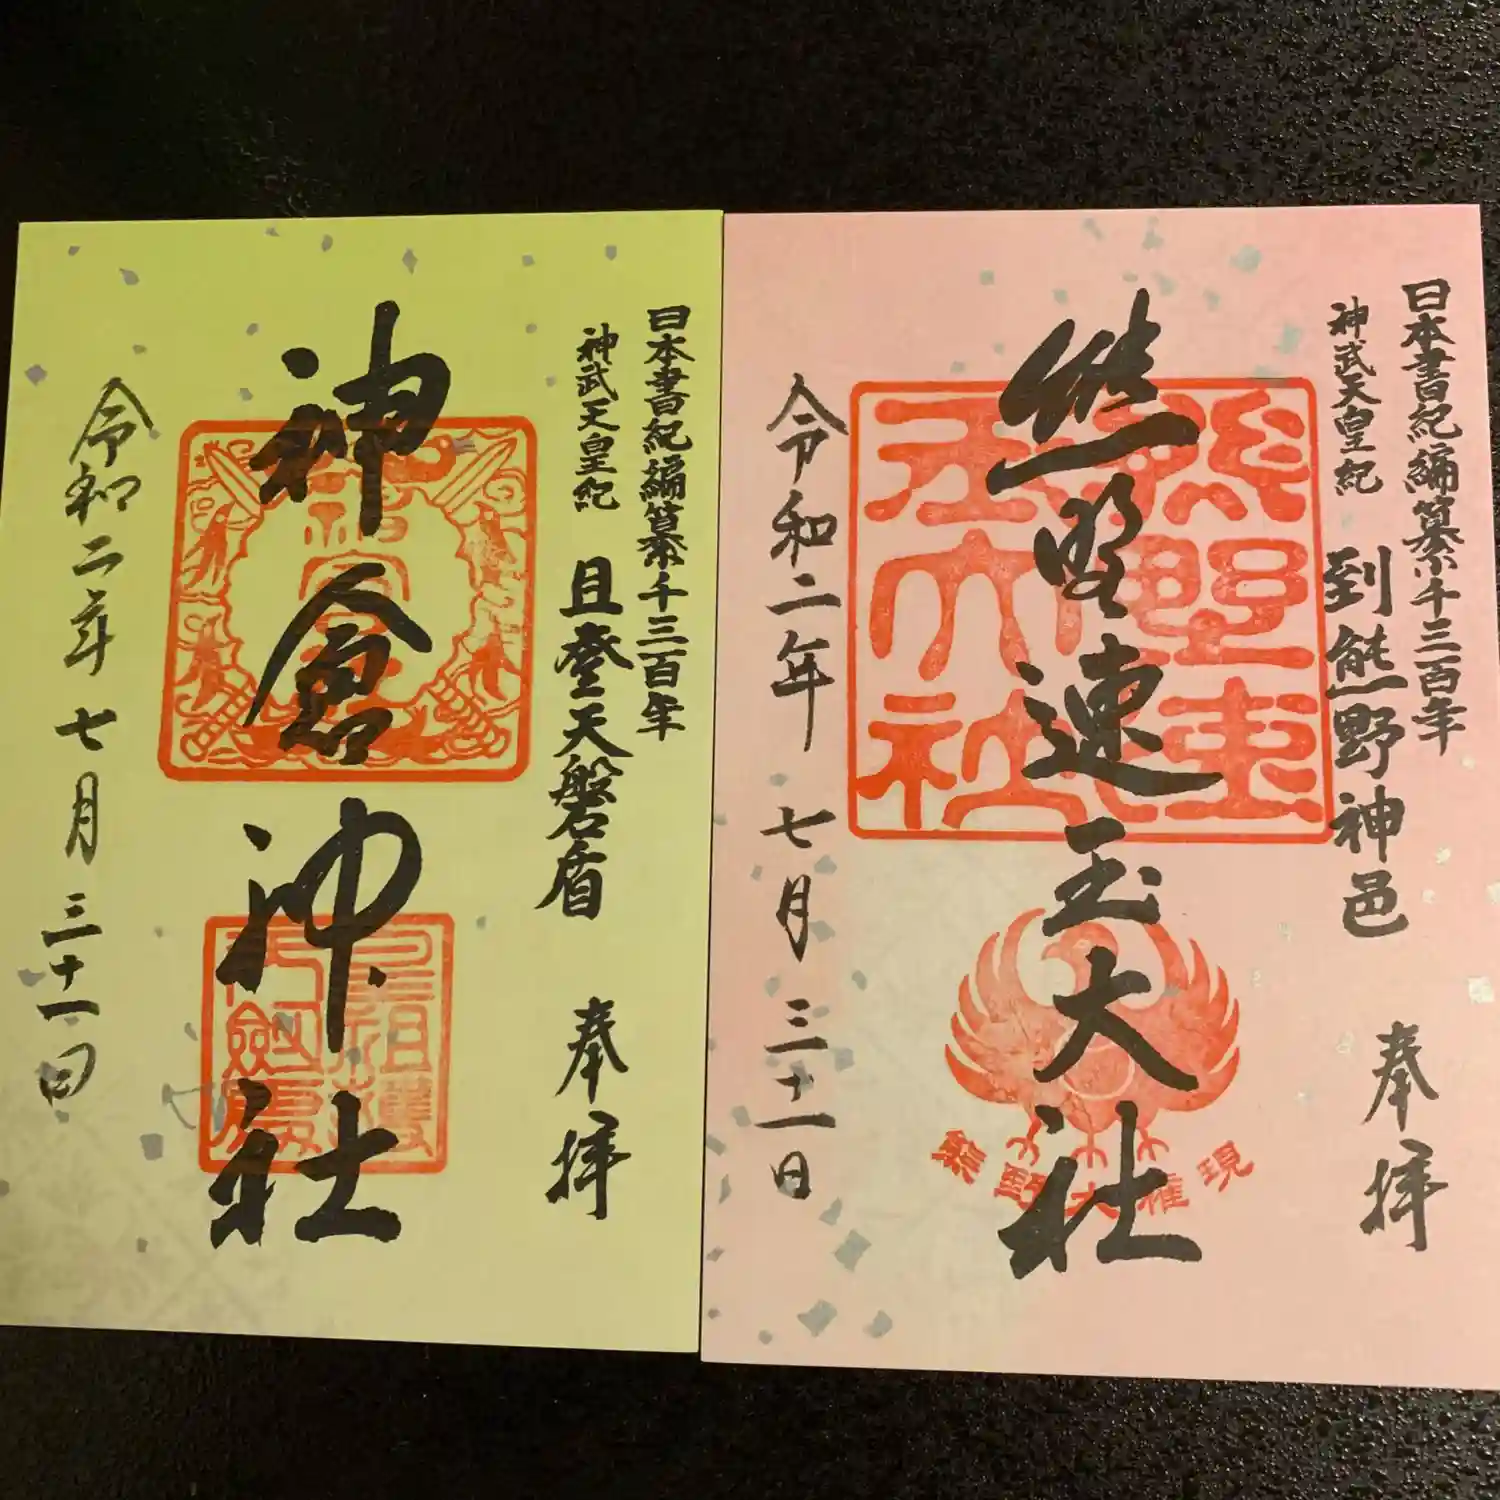 日本書紀編纂千三百年
神武天皇紀 到熊野神邑 奉拝
熊野速玉大社
熊野速玉大社
熊野大権現
令和二年七月三十一日
日本書紀編纂千三百年
神武天皇紀 且登天磐盾 奉拝
神倉神社
令和二年七月三十一日